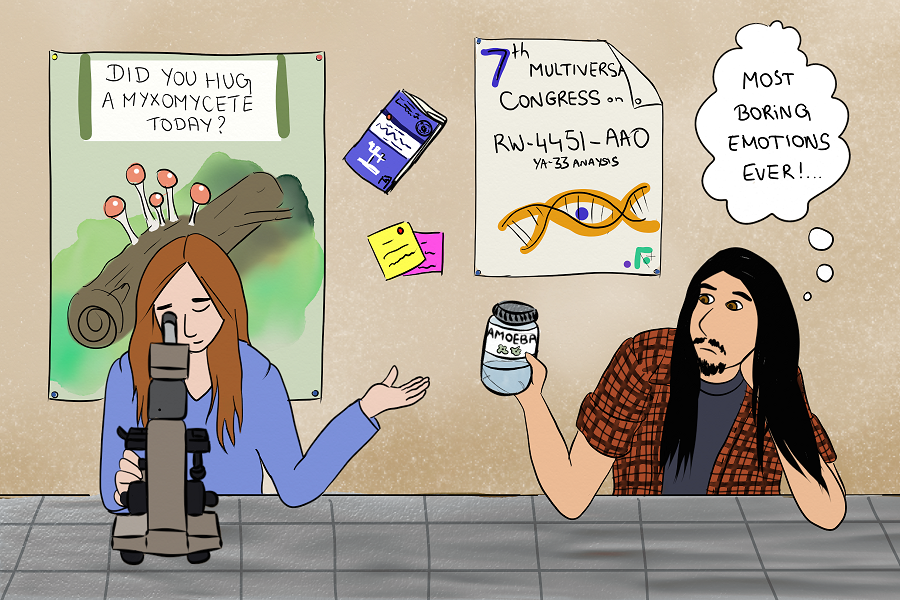 DID YOU HUG
A MYXOMYCETE
TODAY?
7th
MULTIVERSA
CONGRESS on
RW-4451-AAO
YA-33 ANALYSIS
MOST
BORING
EMOTIONS
EVER!...
AMOEBA